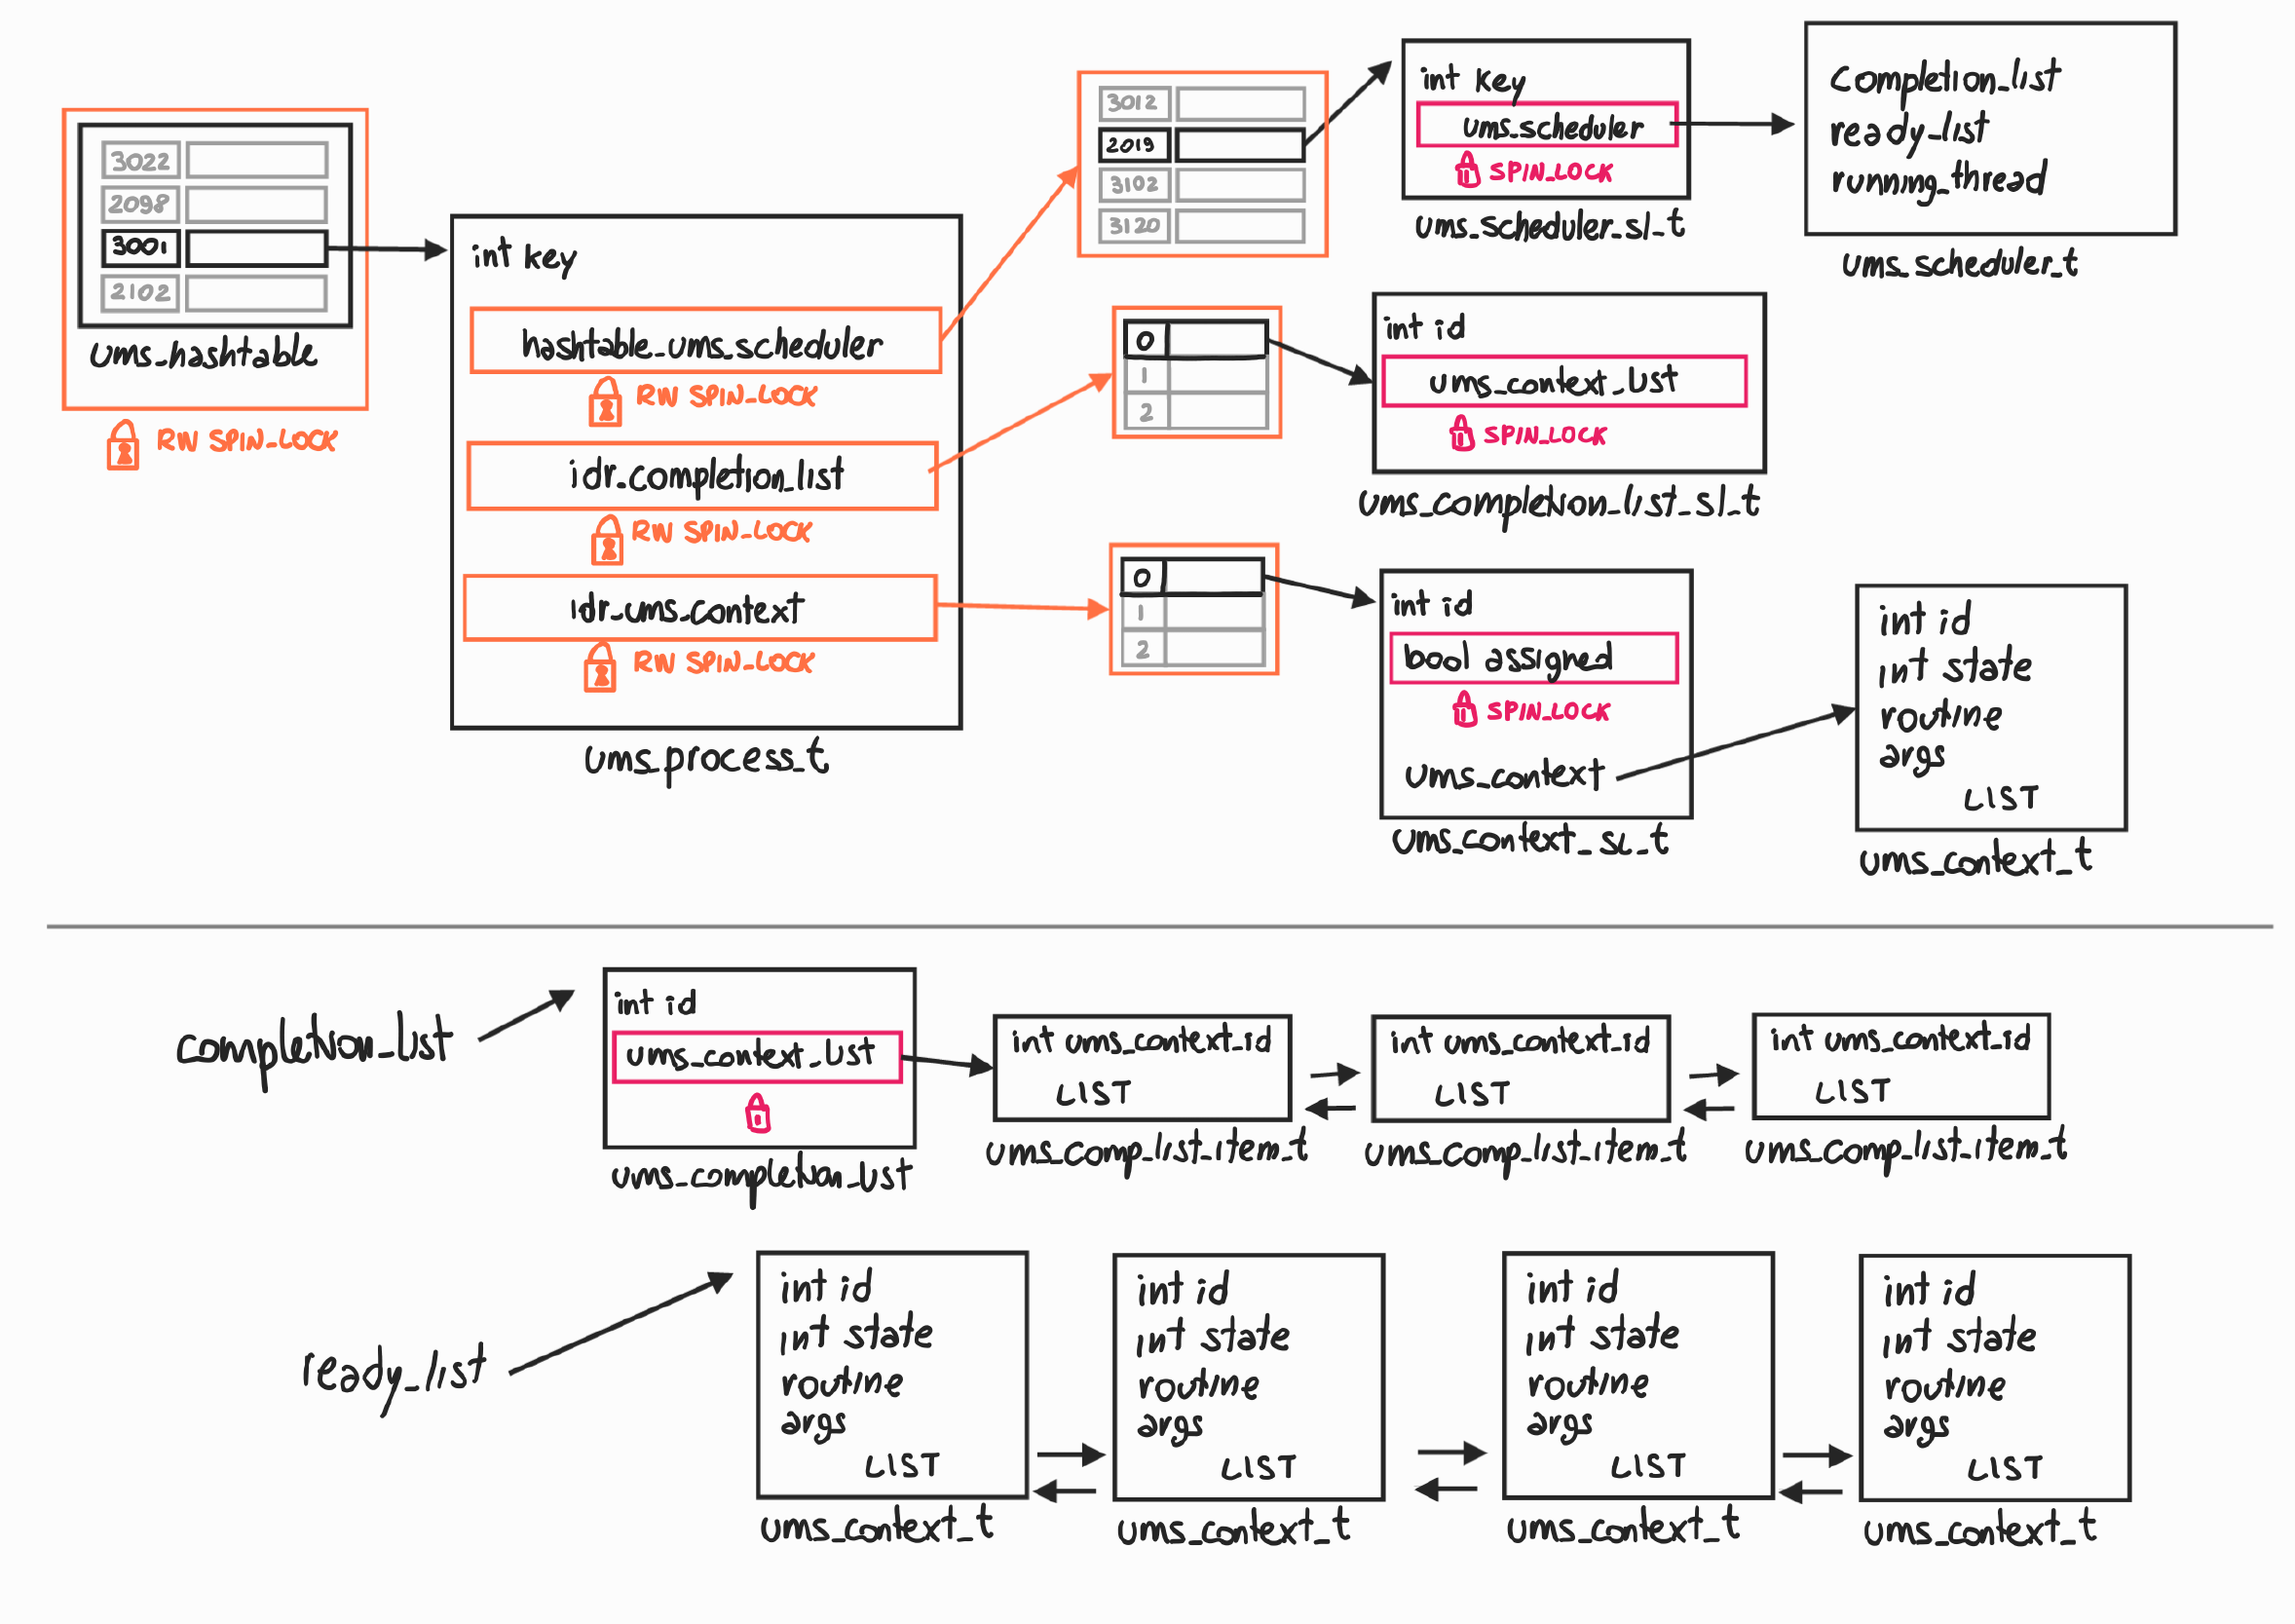 3022
2098
3001
2102
ums_hashtable
RW SPIN_LOCK
int key
hashtable_ums_scheduler
RW SPIN_LOCK
idr_completion_list
RW SPIN_LOCK
idr_ums_context
RW SPIN_LOCK
ums_process_t
3012
2019
3102
3120
int key
ums_scheduler
SPIN_LOCK
ums_scheduler_sl_t
completion_list
ready_list
running_thread
ums_scheduler_t
0
1
2
int id
ums_context_list
SPIN_LOCK
ums_completion_list_sl_t
0
1
2
int id
bool assigned
SPIN_LOCK
ums_context
ums_context_sl_t
int id
int state
routine
args
LIST
ums_context_t
completion_list
int id
ums_context_list
ums_completion_list
int ums_context_id
LIST
ums_comp_list_item_t
int ums_context_id
LIST
ums_comp_list_item_t
int ums_context_id
LIST
ums_comp_list_item_t
ready_list
int id
int state
routine
args
LIST
ums_context_t
int id
int state
routine
args
LIST
ums_context_t
int id
int state
routine
args
LIST
ums_context_t
int id
int state
routine
args
LIST
ums_context_t